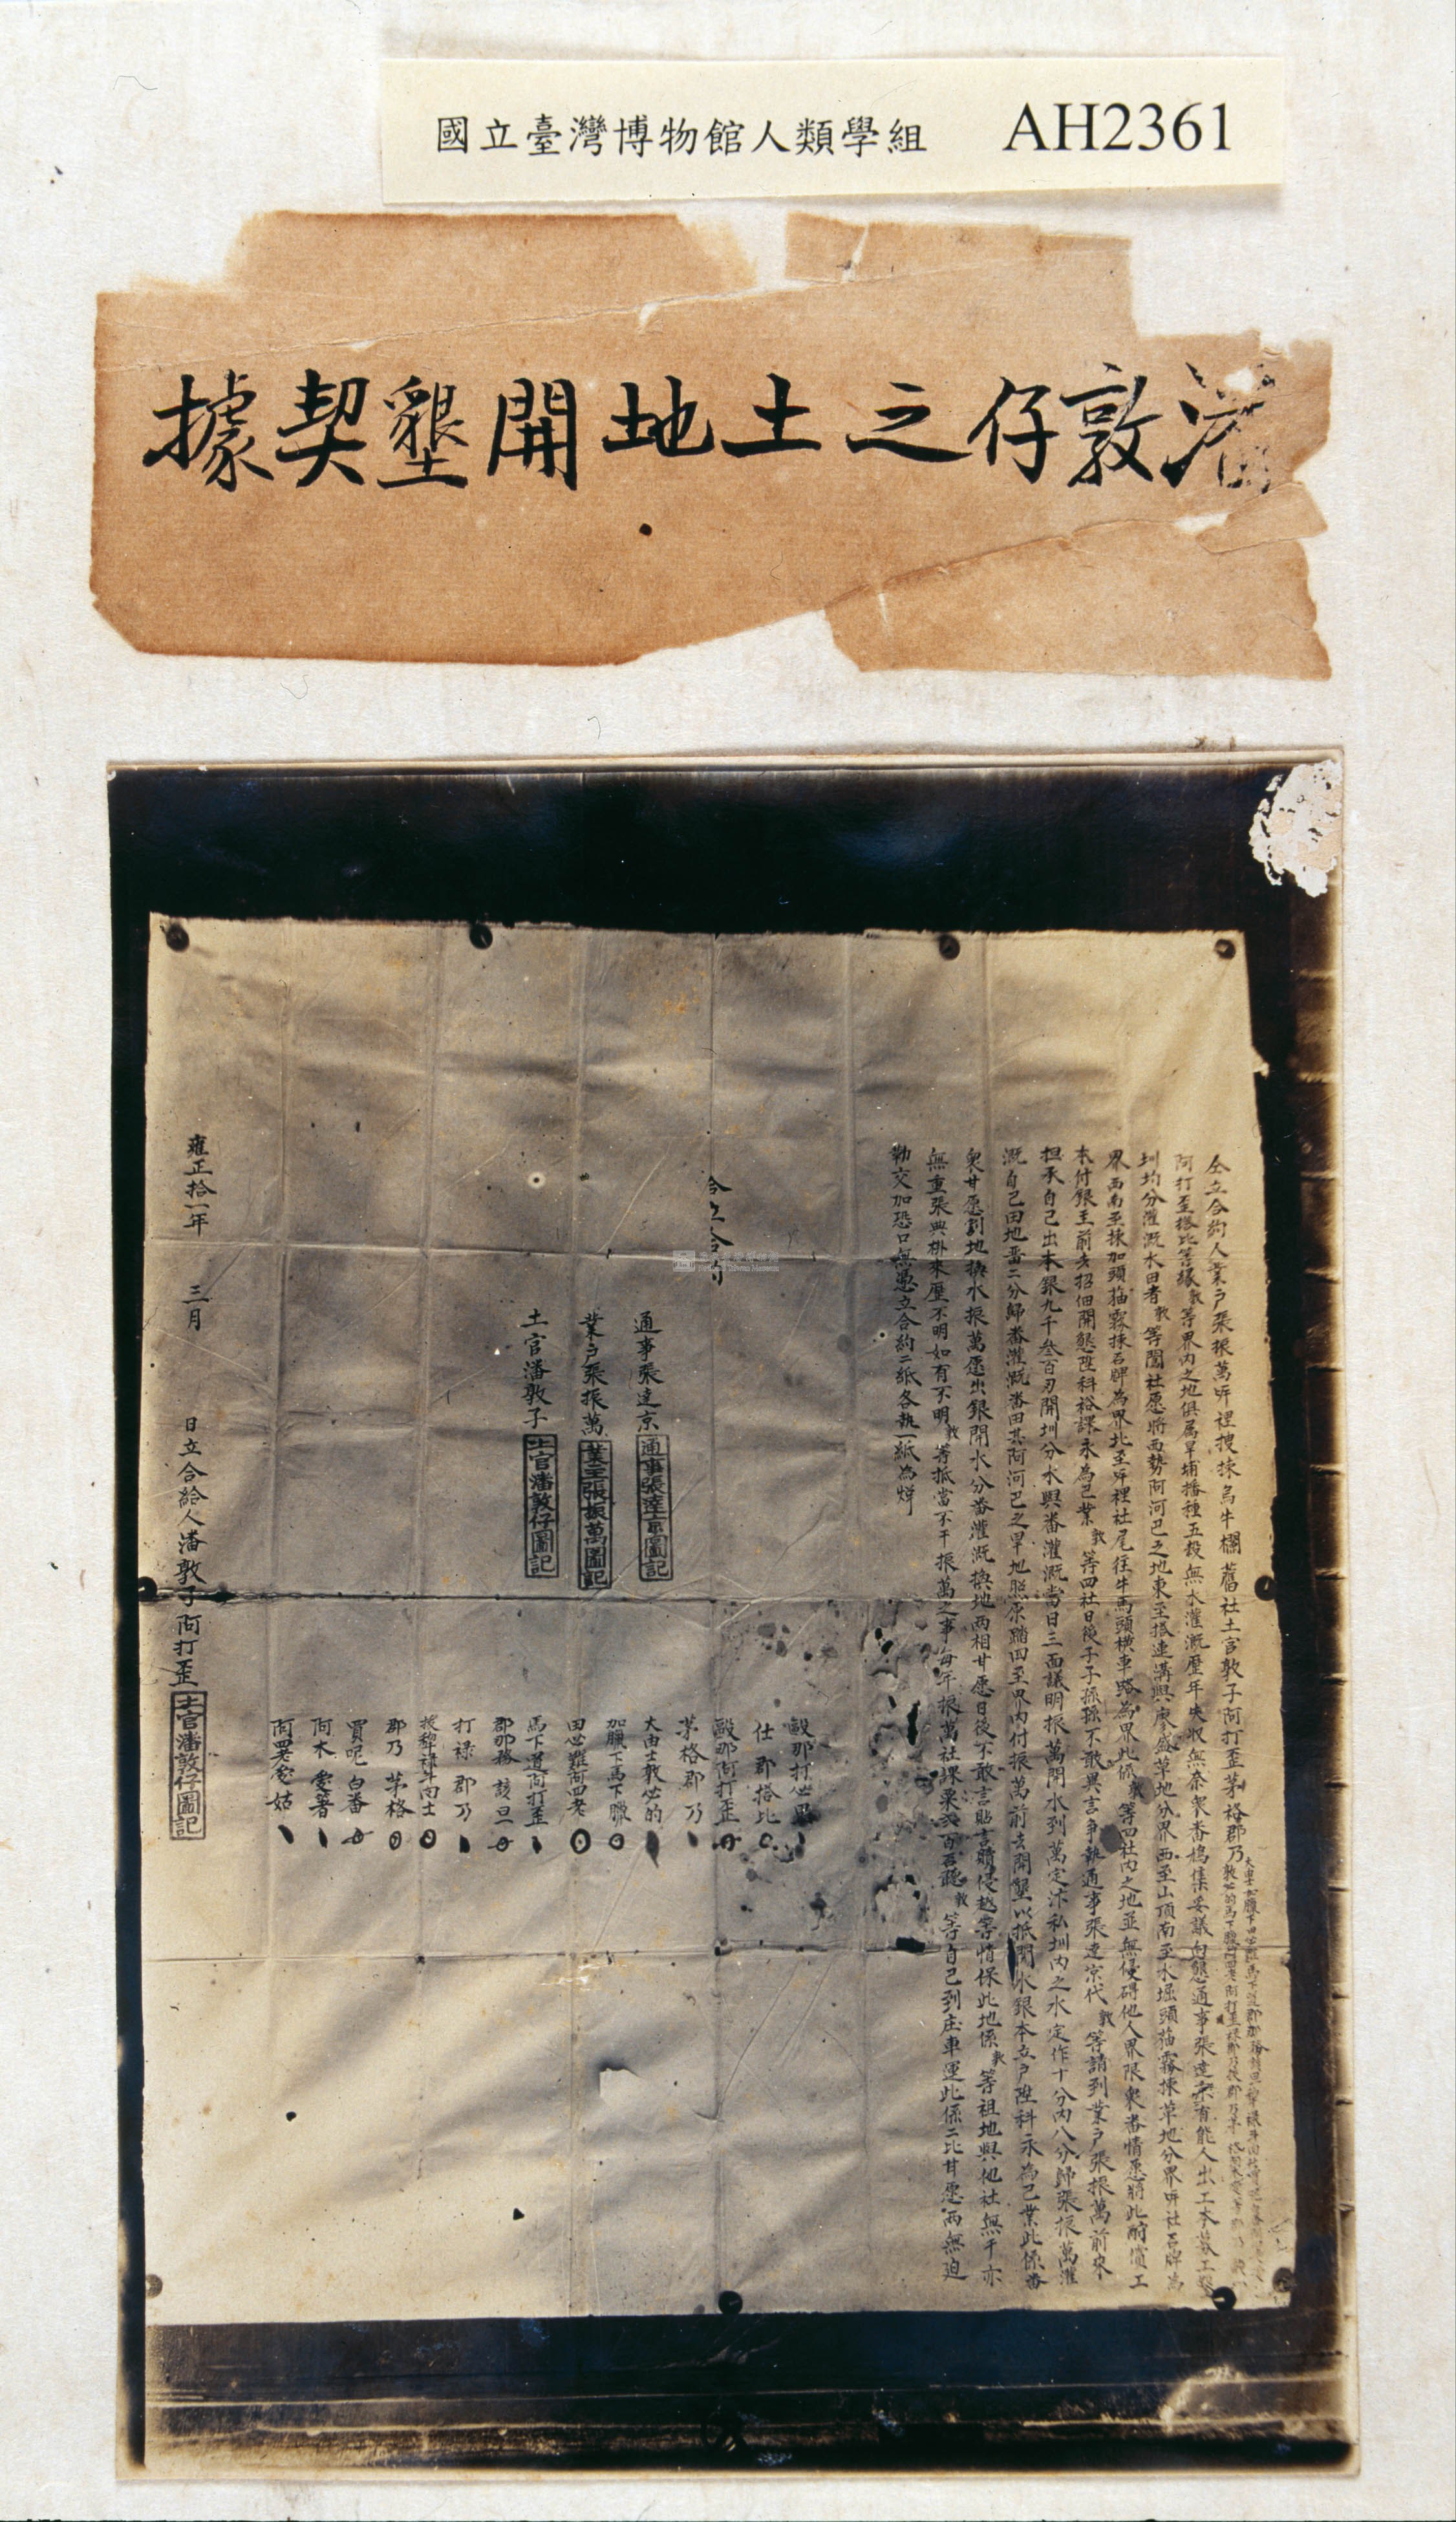 國立臺灣博物館人類學組 AH2361
潘敦仔之土地開墾契據
仝立合約人業戶張振萬岸裡搜揀烏牛欄舊社土官敦子阿打歪茅格郡乃
阿打歪搭比等緣敦等界內之地俱属旱埔播種五穀無水灌溉歷年失収無奈衆番鳩集妥議向懇通事張達京有能人出工本募工
圳均分灌溉水田者敦等闔社愿將西勢阿河巴之地東至搭連溝與廖盛草地分界西至山頂南至水堀頭猫霧揀草地分界岸社石牌為
界西南至揀加頭猫霧揀石牌為界北至岸裡社尾往牛馬頭橫車路為界此係敦等四社內之地並無侵碍他人界限衆番情愿將此酧償工
本付銀主前去招佃開懇陞科裕課永為己業敦等四社日後子子孫孫不敢異言爭執通事張達京代敦等請到業戶張振萬前來
担承自己出本銀九千叁百刃開圳分水與番灌溉當日三面議明振萬開水到萬定汴私圳內之水定作十分內八分歸張振萬灌
溉自己田地番二分歸番灌溉番田其阿河巴之旱地照原踏四至界內付振萬前去開墾以抵開水銀本立戶陞科永為己業此係番
衆甘愿割地換水振萬愿出銀開水分番灌溉換地兩相甘愿日後不敢言貼言贖侵越等情保此地係敦等祖地與他社無干亦
無重張典掛來歷不明如有不明敦等抵當不干振萬之事每年振萬社課粟 百石聽敦等自己到庄車運此係二比甘愿兩無迫
勒交加恐口無憑立合約二紙各執一紙為炤
合立合約
通事張達京 通事張達京圖記
業戶張振萬 業主張振萬圖記
土官潘敦子 土官潘敦仔圖記
毆那打必里
仕郡搭比
毆那阿打歪
茅格郡乃
大由士敦必的
加臘下馬下臘
田必難阿四老
馬下道阿打歪
郡那務該旦
打祿郡乃
郡乃茅格
買呢白番
阿木愛著
阿四老愛姑
雍正拾一年 三月 日立合給人潘敦子阿打歪 土官潘敦仔圖記